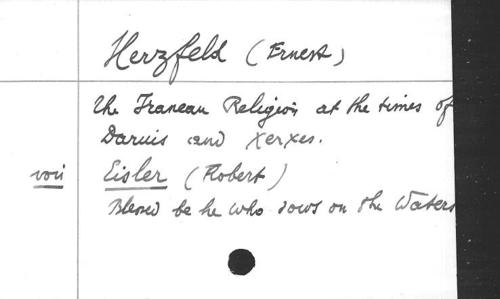 Herzfeld (Ernest)
The Iranean Religion at the times of
Darius and Xerxes.
voir Eisler (Robert)
Blessed be he who sows on the Waters